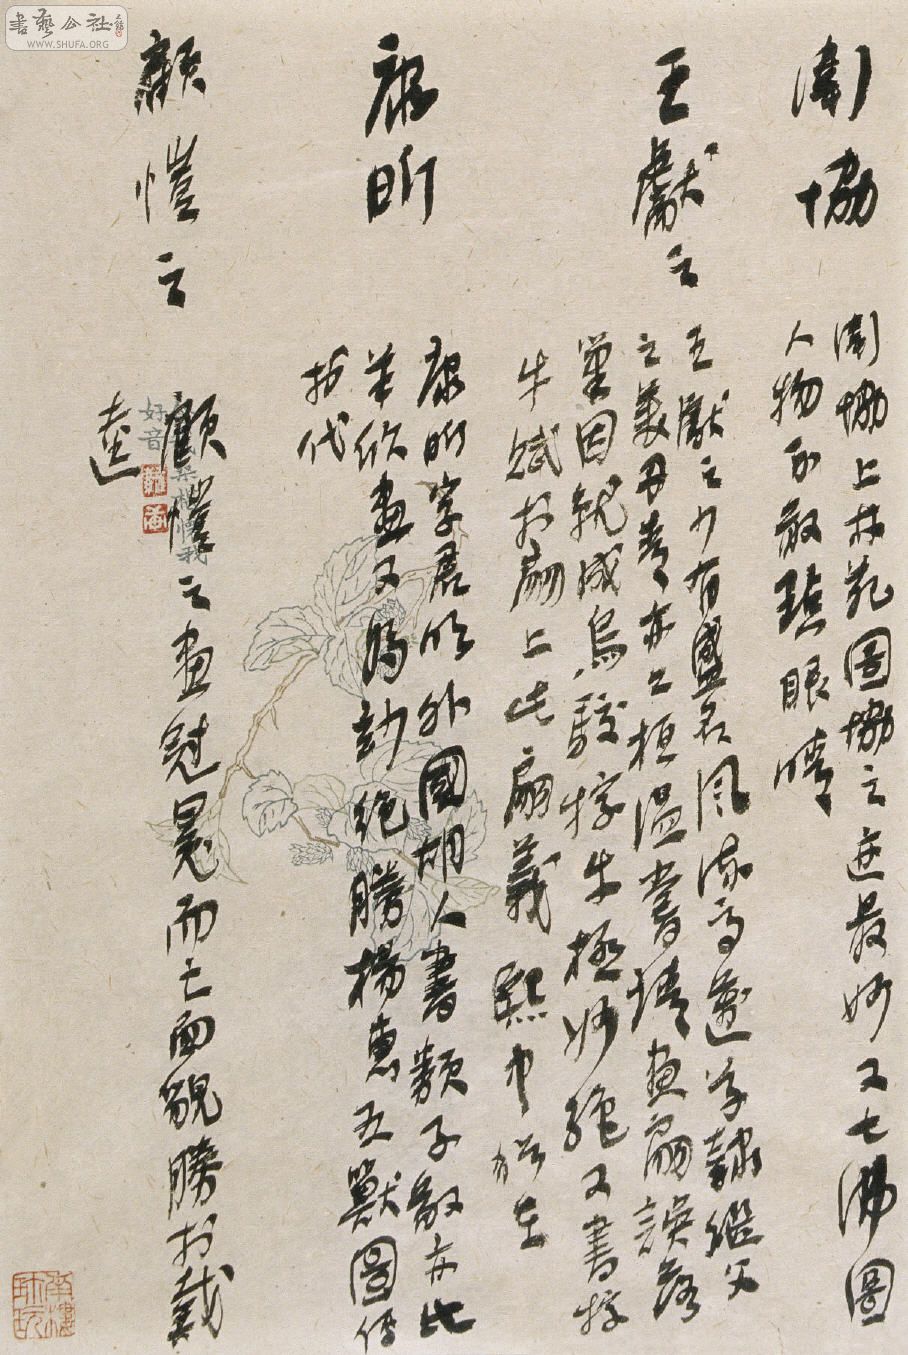 衛協
衛協上林苑圖協之迹最妙又七佛圖
人物不敢點眼睛
王獻之
王獻之少有盛名風流高邁草隸繼父
之美丹青亦工桓溫嘗請畫扇誤落
筆因就成烏駮牸牛極妙絕又書牸
牛賦於扇上此扇義熙中猶在
康昕
康昕字君明外國胡人書類子敬亦比
羊欣畫又為妙絕勝楊惠五獸圖傳
於代
顧愷之
顧愷之畫冠冕而亡面貌勝於戴
逵
好音
書藝公社
WWW.SHUFA.ORG